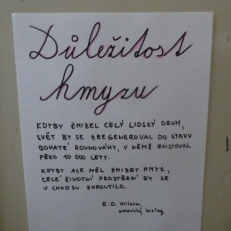 Důležitost
hmyzu
KDYBY ZMIZEL CELÝ LIDSKÝ DRUH,
SVĚT BY SE ZREGENEROVAL DO STAVU
BOHATÉ ROVNOVÁHY, V NĚMŽ EXISTOVAL
PŘED 10 000 LETY.
KDYBY ALE MĚL ZMIZET HMYZ,
CELÉ ŽIVOTNÍ PROSTŘEDÍ BY SE
V CHAOSU ZHROUTILO.
E. O. Wilson,
americký biolog